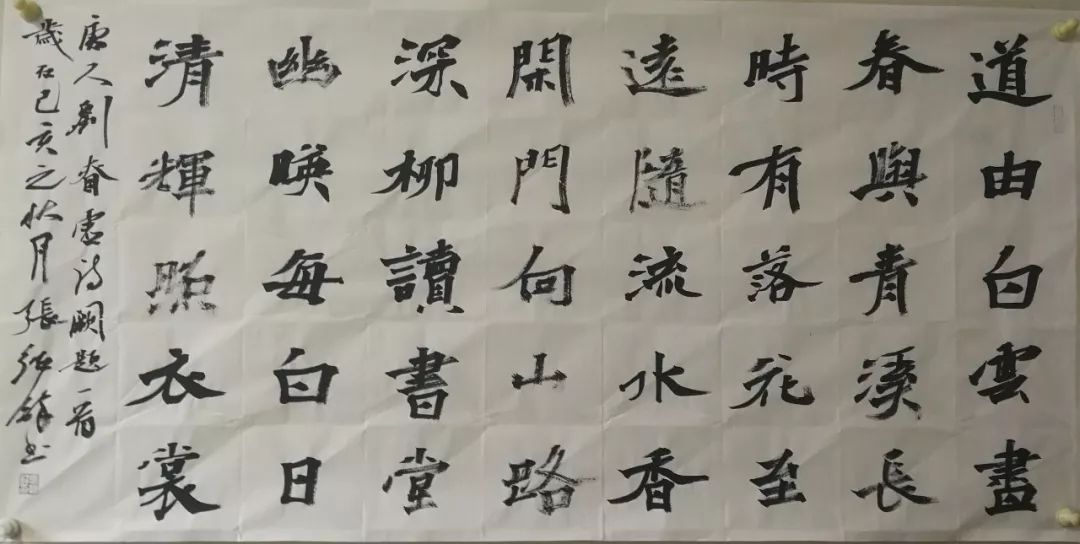 道由白雲盡
春與青溪長
時有落花至
遠隨流水香
閑門向山路
深柳讀書堂
幽暎每白日
清輝照衣裳
唐人劉眘虛詩闕題一首
歲在己亥之秋月張書